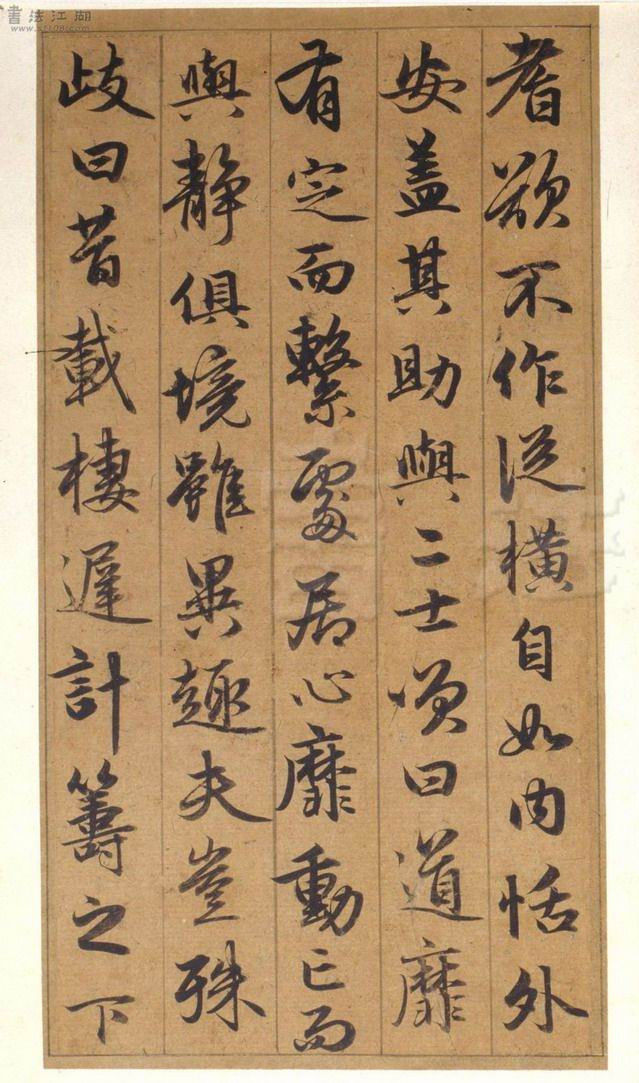 書法江湖
www.sf108.com
耆欲不作從橫自如內恬外
安蓋其助與二士頌曰道靡
有定而繫處居心靡動亡而
與靜俱境雖異趣夫豈殊
歧曰昔載棲遲計籌之下